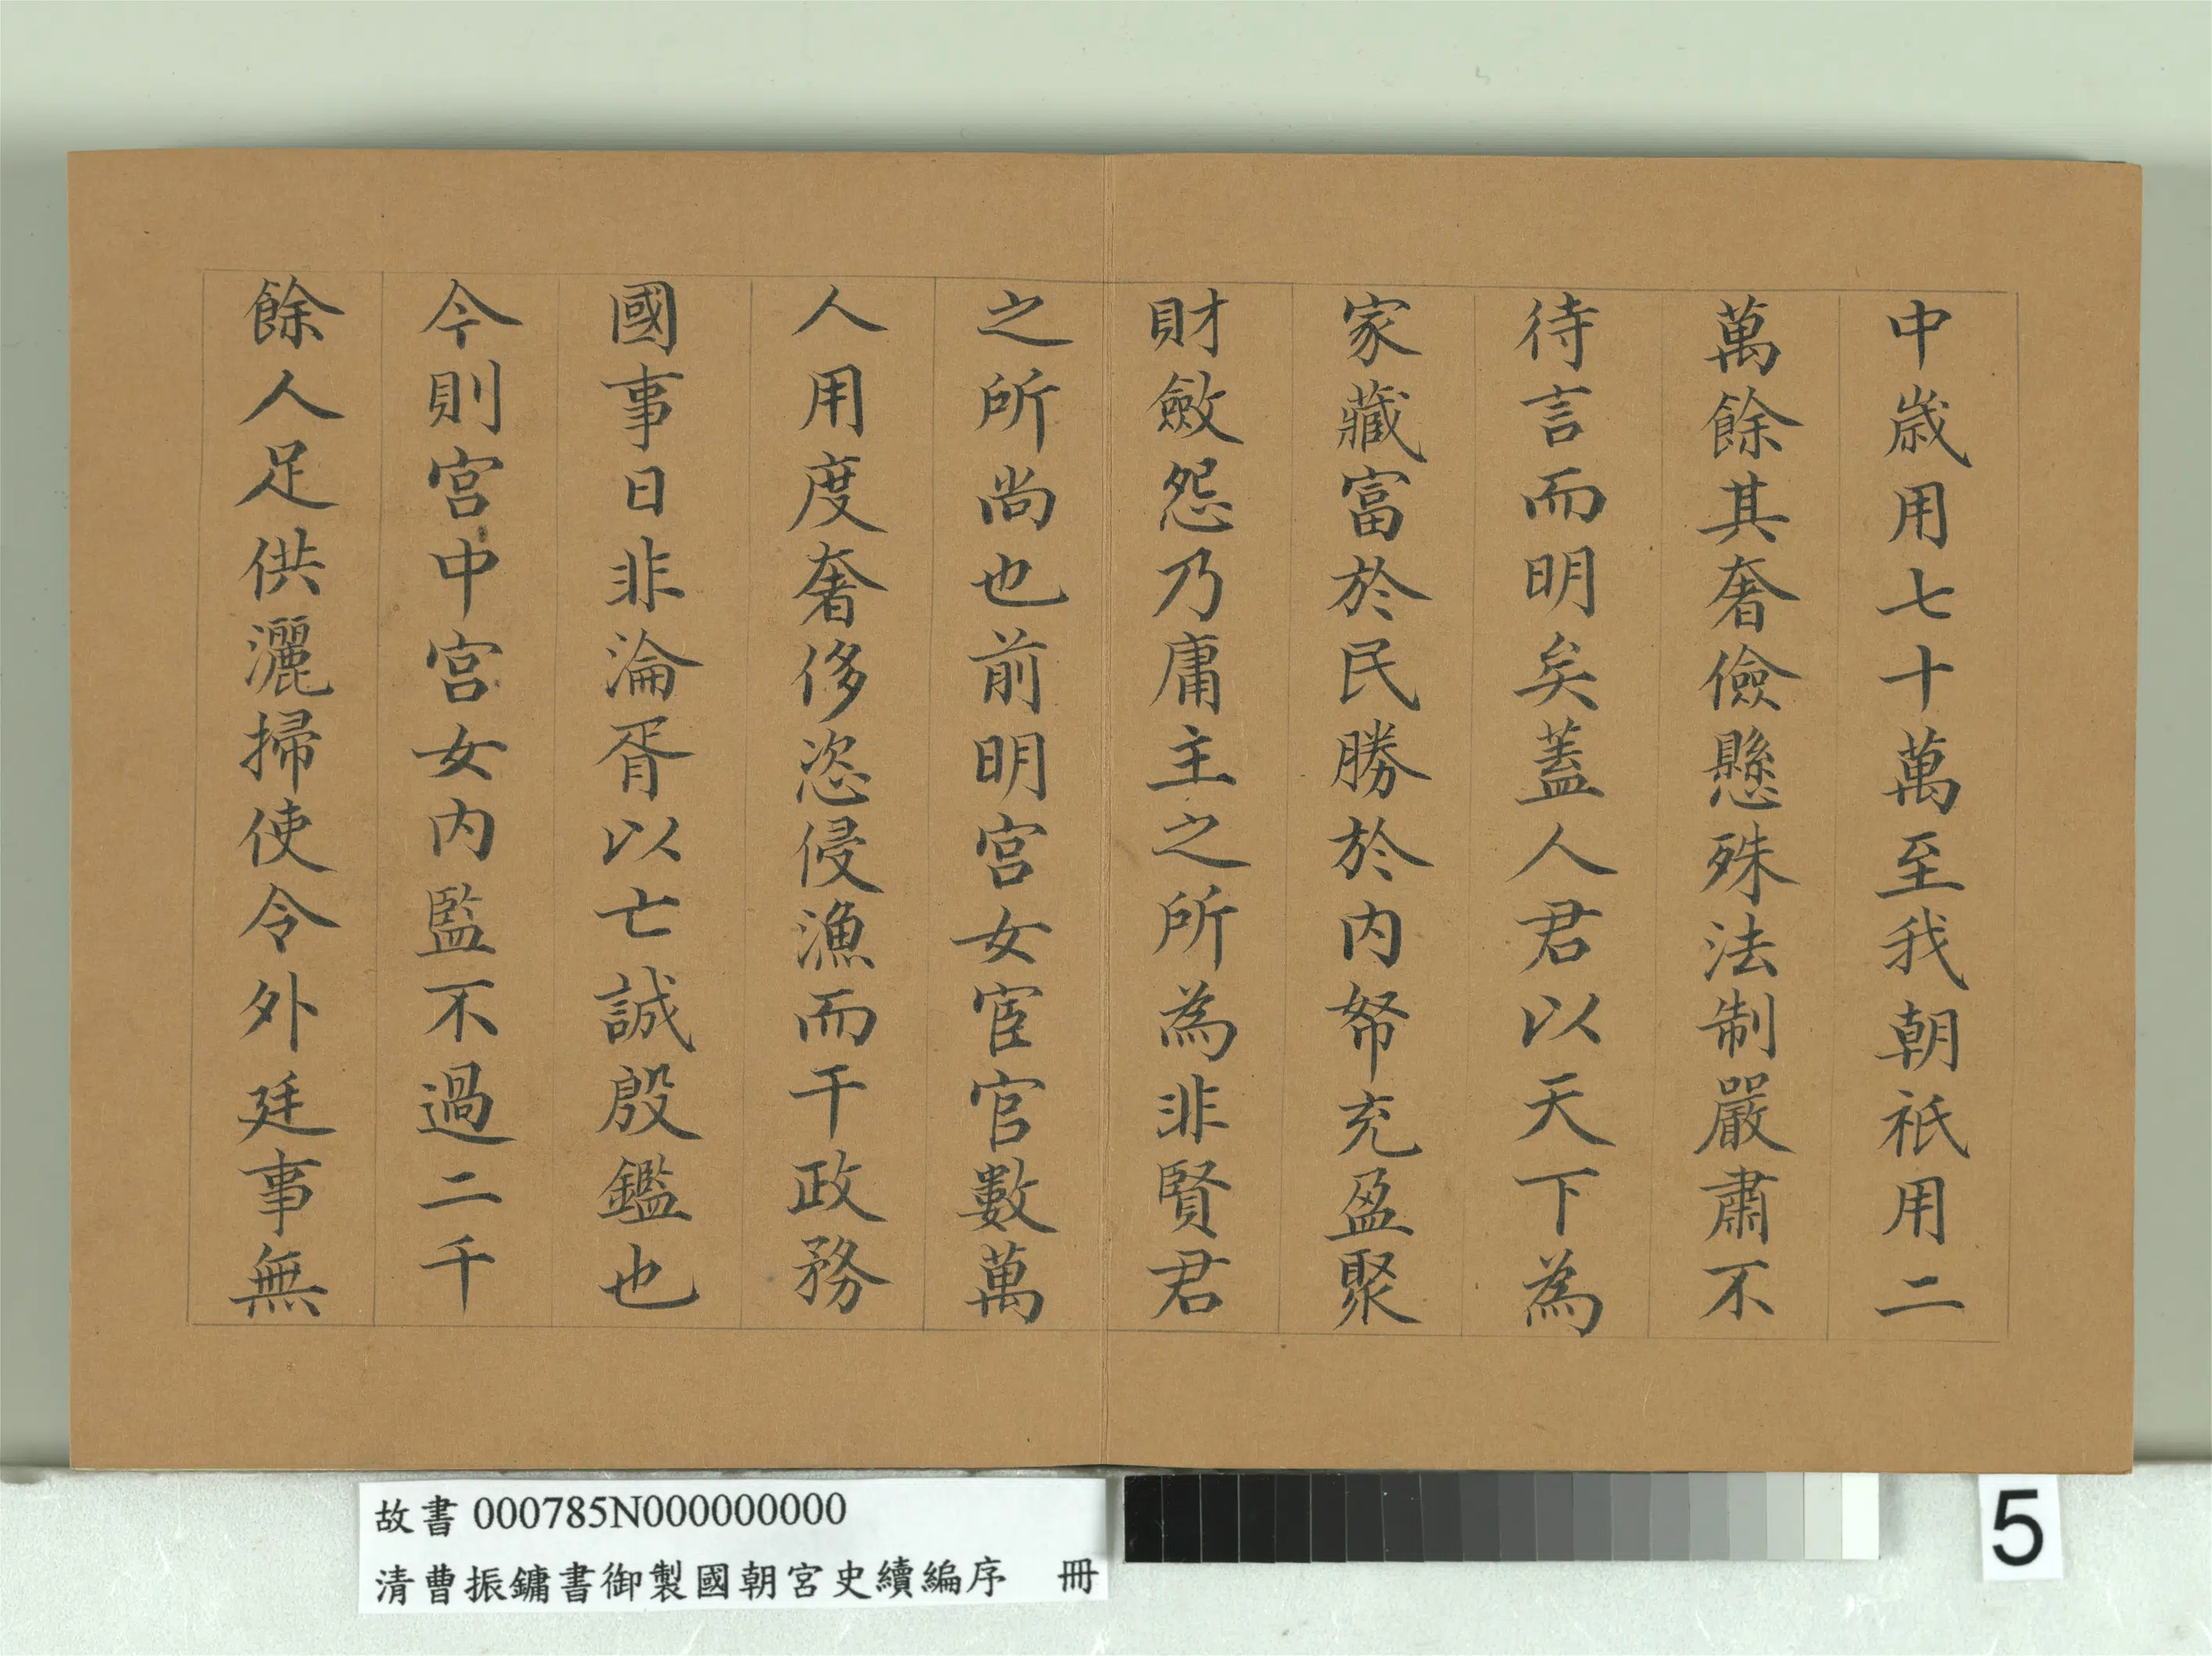 中歲用七十萬至我朝祇用二
萬餘其奢儉懸殊法制嚴肅不
待言而明矣蓋人君以天下為
家藏富於民勝於内帑充盈聚
財斂怨乃庸主之所為非賢君
之所尚也前明宮女宦官數萬
人用度奢侈恣侵漁而干政務
國事日非淪胥以亡誠殷鑑也
今則宮中宮女内監不過二千
餘人足供灑掃使令外廷事無
故書 000785N000000000
清曹振鏞書御製國朝宮史續編序 冊
5